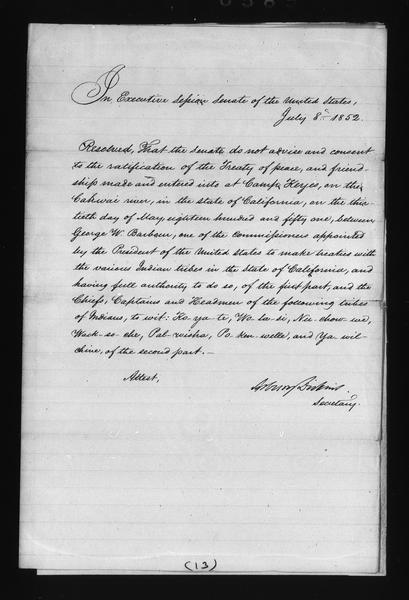 In Executive Session Senate of the United States,
July 8th 1852.
Resolved, That the Senate do not advise and consent
to the ratification of the Treaty of peace, and friend-
ship made and entered into at Camp Keyes, on the
Cahwai river, in the state of California, on the thir
tieth day of May eighteen hundred and fifty one, between
George W. Barbour, one of the commissioners appointed
by the President of the United States to make treaties with
the various Indian tribes in the State of California, and
having full authority to do so, of the first part, and the
Chiefs, Captains and Headmen of the following tribes
of Indians, to wit: Ko-ya-te, Wo-la-si, Nu-chow-we,
Wack-sa-che, Pal-wisha, Po-ken-welle, and Ya-wil-
chine, of the second part.—
Attest,
Asbury Dickins
Secretary.
(13)